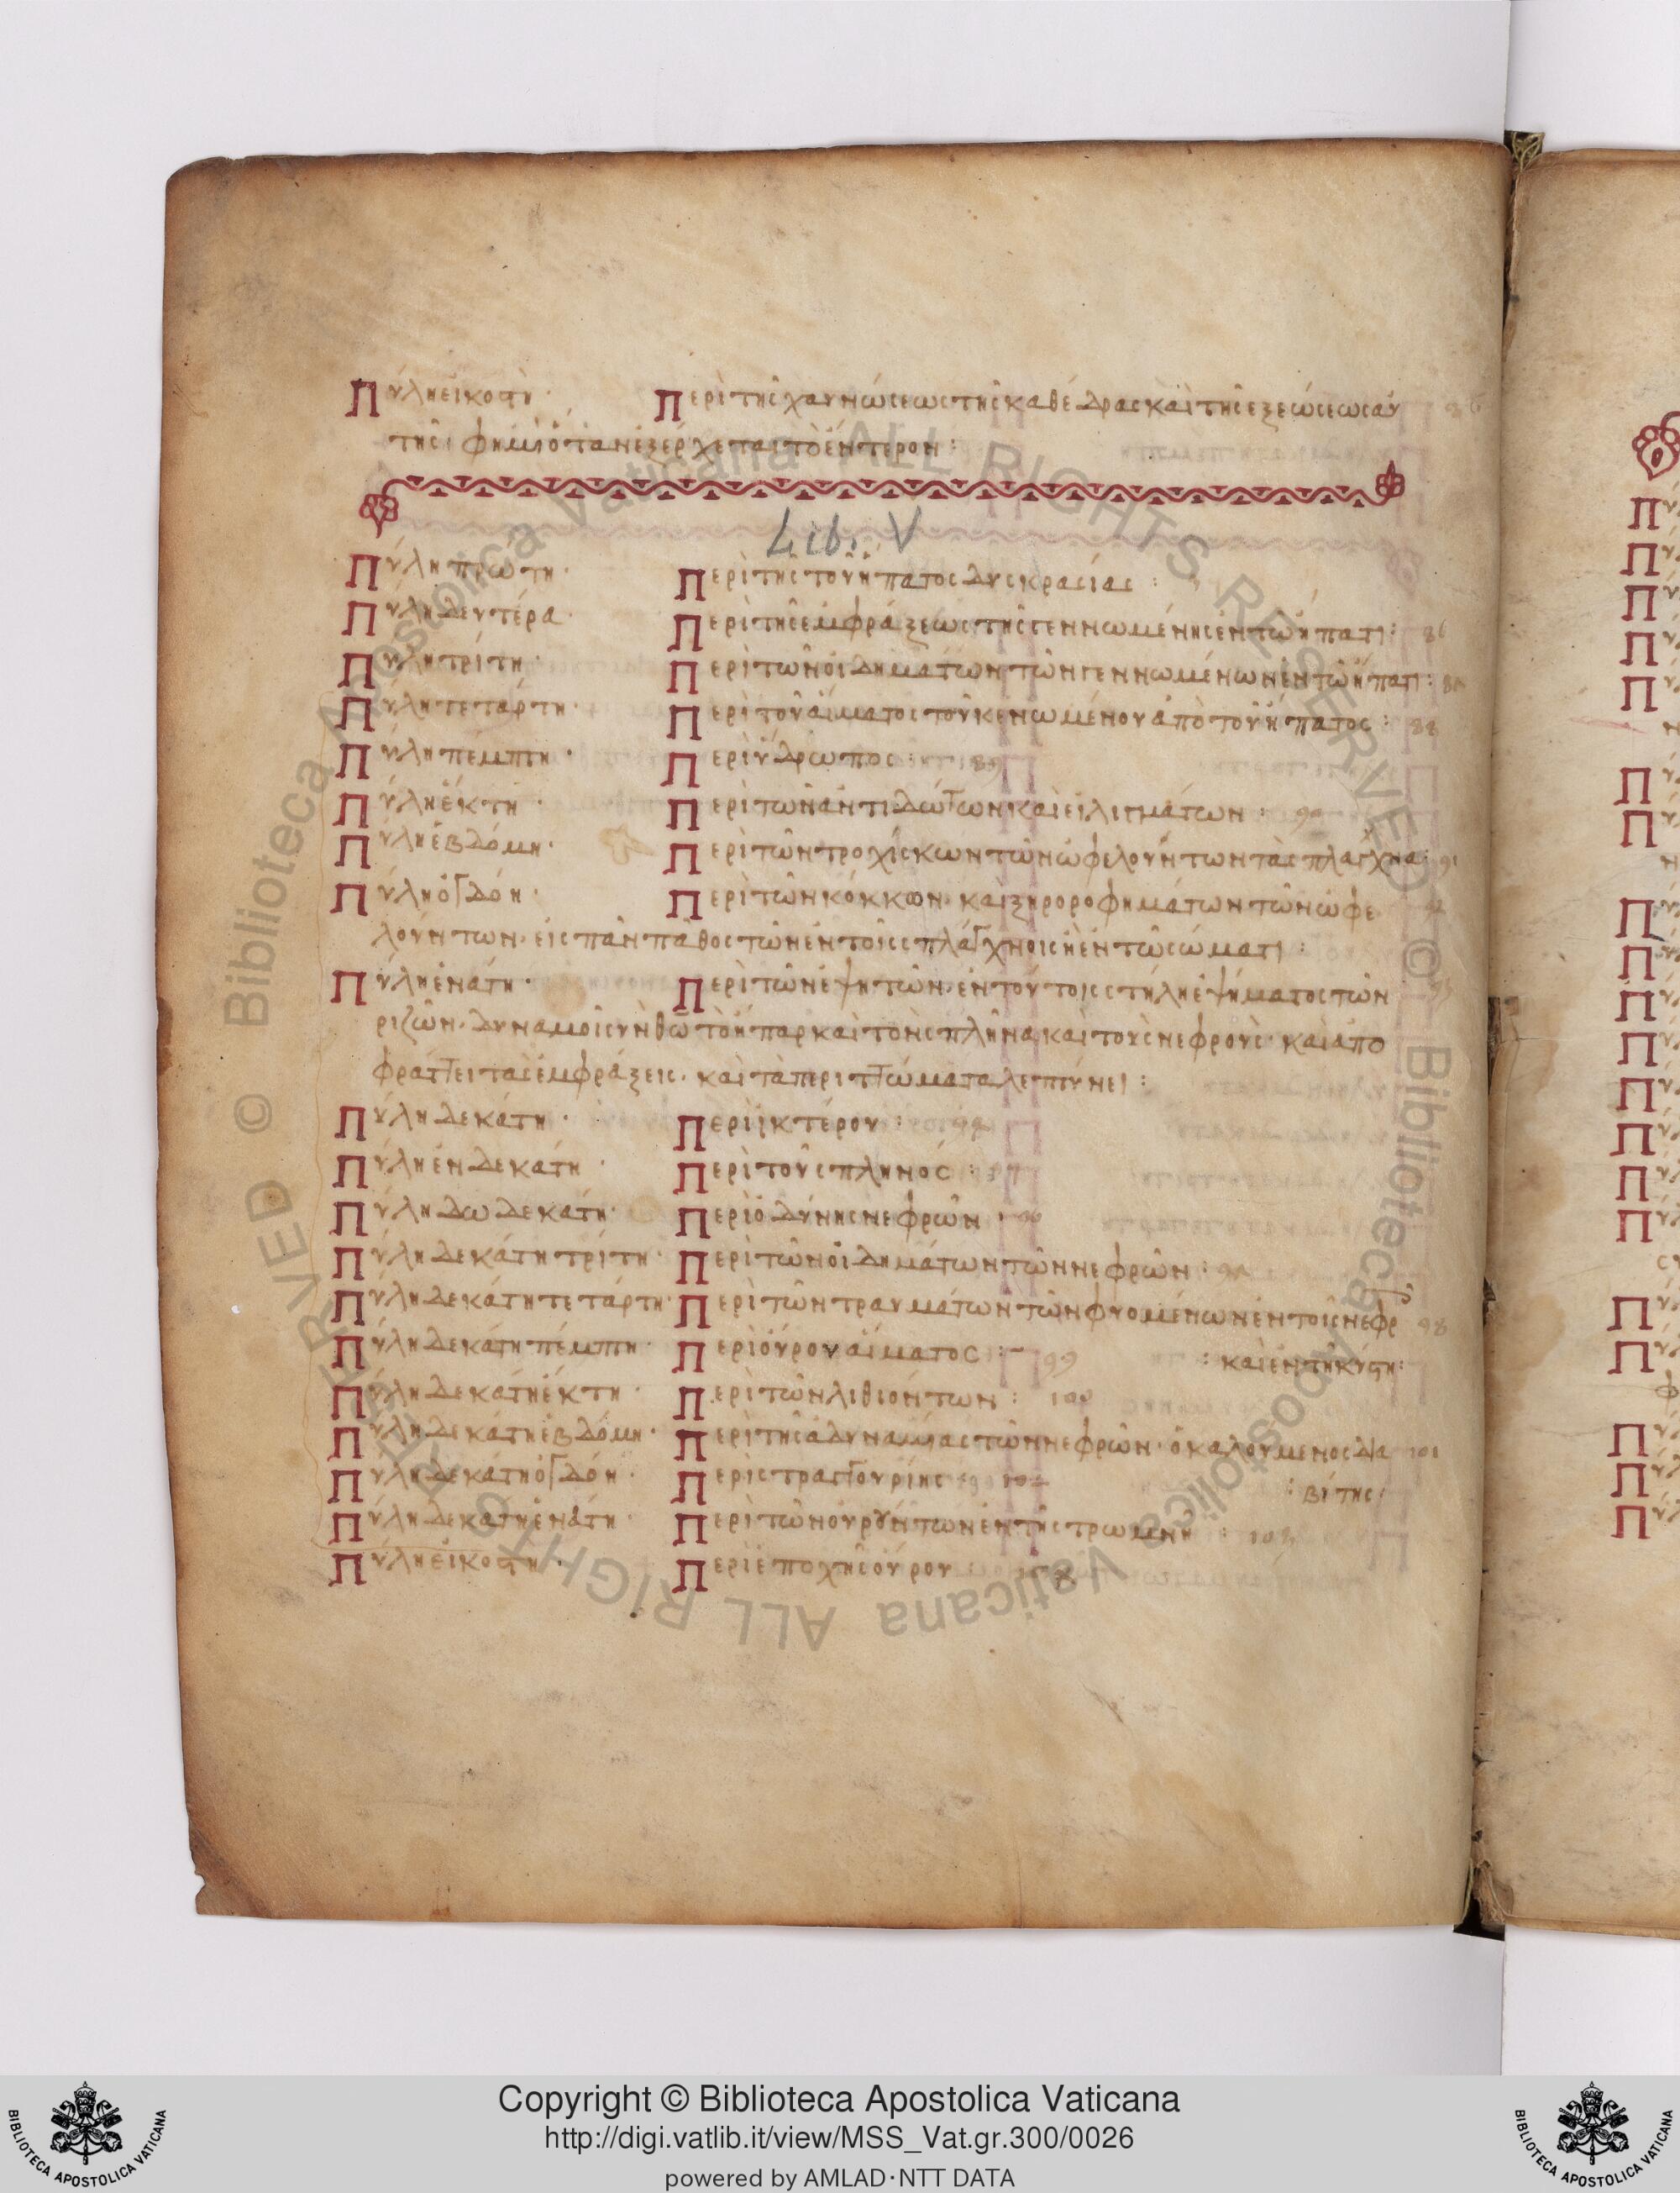 Πύλη εἰκοστὴ· Περὶ τῆς χαυνώσεως τῆς καθέδρας καὶ τῆς ἐξεώσεως αὐ
τῆς· φημὶ ὅταν ἐξέρχεται τὸ ἔντερον:
Lib. V
Πύλη πρώτη· Περὶ τῆς τοῦ ἥπατος δυσκρασίας:
Πύλη δευτέρα· Περὶ τῆς ἐμφράξεως τῆς γεννωμένης ἐν τῶ ἥπατι: 86
Πύλη τρίτη· Περὶ τῶν οἰδημάτων τῶν γεννωμένων ἐν τῶ ἥπατι:
Πύλη τετάρτη· Περὶ τοῦ αἵματος τοῦ κενωμένου ἀπὸ τοῦ ἥπατος: 88
Πύλη πέμπτη· Περὶ ὕδρωπος: 89
Πύλη ἕκτη· Περὶ τῶν ἀντιδώτων καὶ εἰλιγμάτων: 90
Πύλη ἑβδόμη· Περὶ τῶν τροχίσκων τῶν ὠφελούντων τὰ σπλάγχνα: 91
Πύλη ὀγδόη· Περὶ τῶν κόκκων· καὶ ξηρορόφημάτων τῶν ὠφε
λούντων· εἰς πᾶν πάθος τῶν ἐν τοῖς σπλάγχνοις ἢ ἐν τῶ σώματι:
Πύλη ἐνάτη· Περὶ τῶν ἑψητῶν· ἐν τούτοις στήλη ἑψήματος τῶν
ριζῶν· δυναμοῖ συνηθῶ τὸ ἧπαρ καὶ τὸν σπλῆνα καὶ τοὺς νεφρούς· καὶ ἀπο
φράττει τὰς ἐμφράξεις· καὶ τὰ περιττώματα λεπτύνει:
Πύλη δεκάτη· Περὶ ἰκτέρου:
Πύλη ἑνδεκάτη· Περὶ τοῦ σπληνός:
Πύλη δωδεκάτη· Περὶ ὀδύνης νεφρῶν·
Πύλη δεκάτη τρίτη· Περὶ τῶν οἰδημάτων τῶν νεφρῶν:
Πύλη δεκάτη τετάρτη· Περὶ τῶν τραυμάτων τῶν φυομένων ἐν τοῖς νεφρ 98
Πύλη δεκάτη πέμπτη· Περὶ οὔρου αἵματος: 99 : καὶ ἐν τῆ κύστη:
Πύλη δεκάτη ἕκτη· Περὶ τῶν λιθιόντων: 100
Πύλη δεκάτη ἑβδόμη· Περὶ τῆς ἀδυναμίας τῶν νεφρῶν· ὁ καλούμενος δια 101
Πύλη δεκάτη ὀγδόη· Περὶ στραγγουρίης : βίτης:
Πύλη δεκάτη ἐνάτη· Περὶ τῶν οὐρούντων ἐν τῆ στρωμνῆ:
Πύλη εἰκοστὴ· Περὶ ἐποχῆς οὔρου
Copyright © Biblioteca Apostolica Vaticana
http://digi.vatlib.it/view/MSS_Vat.gr.300/0026
powered by AMLAD·NTT DATA
BIBLIOTECA APOSTOLICA VATICANA
BIBLIOTECA APOSTOLICA VATICANA
© Biblioteca Apostolica Vaticana ALL RIGHTS RESERVED © Biblioteca Apostolica Vaticana ALL RIGHTS RESERVED